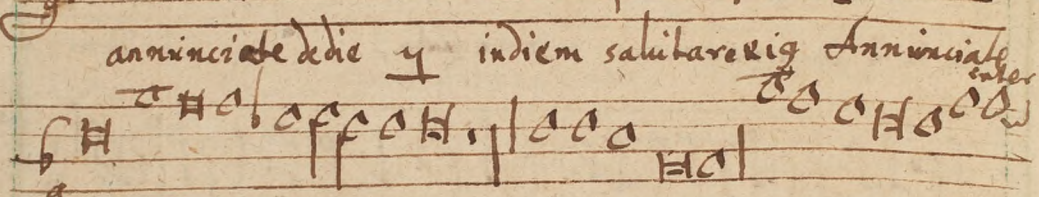 annunciate de die y in diem salutare eis Annunciate
inter